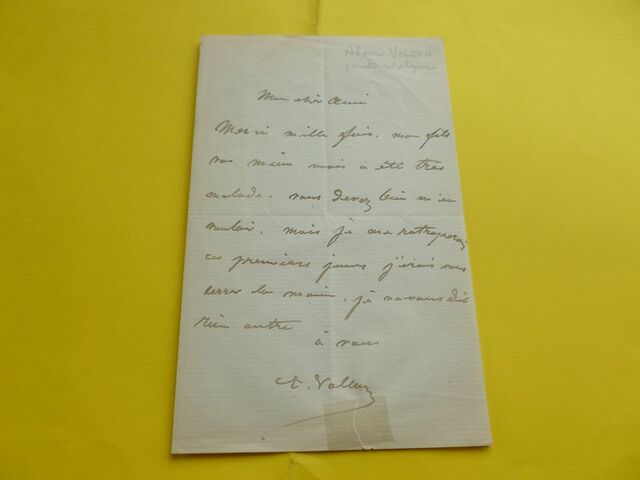 Vollon
peintre né à Lyon
Mon cher Ami
Merci mille fois. mon fils
vas mieux mais a été très
malade. vous devez bien m'en
vouloir. mais je me rattraperai
ces premiers jours j'irai vous
serrer la main. je ne vous dis
rien autre
à vous
A. Vollon